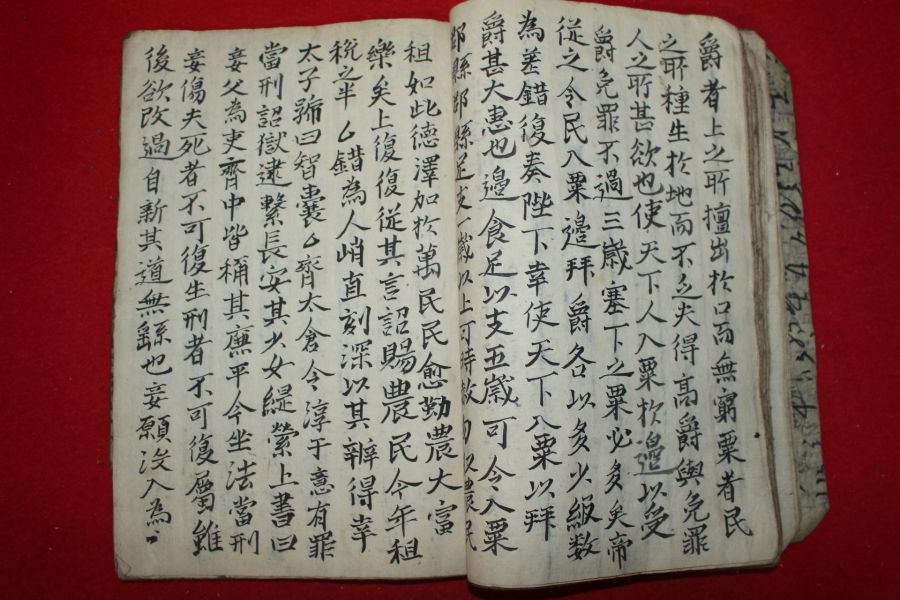 爵者上之所擅出於口而無窮粟者民
之所種生於地而不乏夫得高爵與免罪
人之所甚欲也使天下人入粟於邊以受
爵免罪不過三歲塞下之粟必多矣帝
從之令民入粟邊拜爵各以多少級数
為差錯復奏陛下幸使天下入粟以拜
爵甚大惠也邊食足以支五歲可令入粟
郡縣郡縣足支一歲以上可時赦勿収農民
租如此德澤加於萬民民愈勤農大富
樂矣上復復従其言詔賜農民今年租
稅之半乙錯為人峭直刻深以其辯得幸
太子號曰智囊乙齊太倉令淳于意有罪
當刑詔獄逮繫長安其少女緹縈上書曰
妾父為吏齊中皆稱其廉平今坐法當刑
妾傷夫死者不可復生刑者不可復屬雖
後欲改過自新其道無繇也妾願沒入為